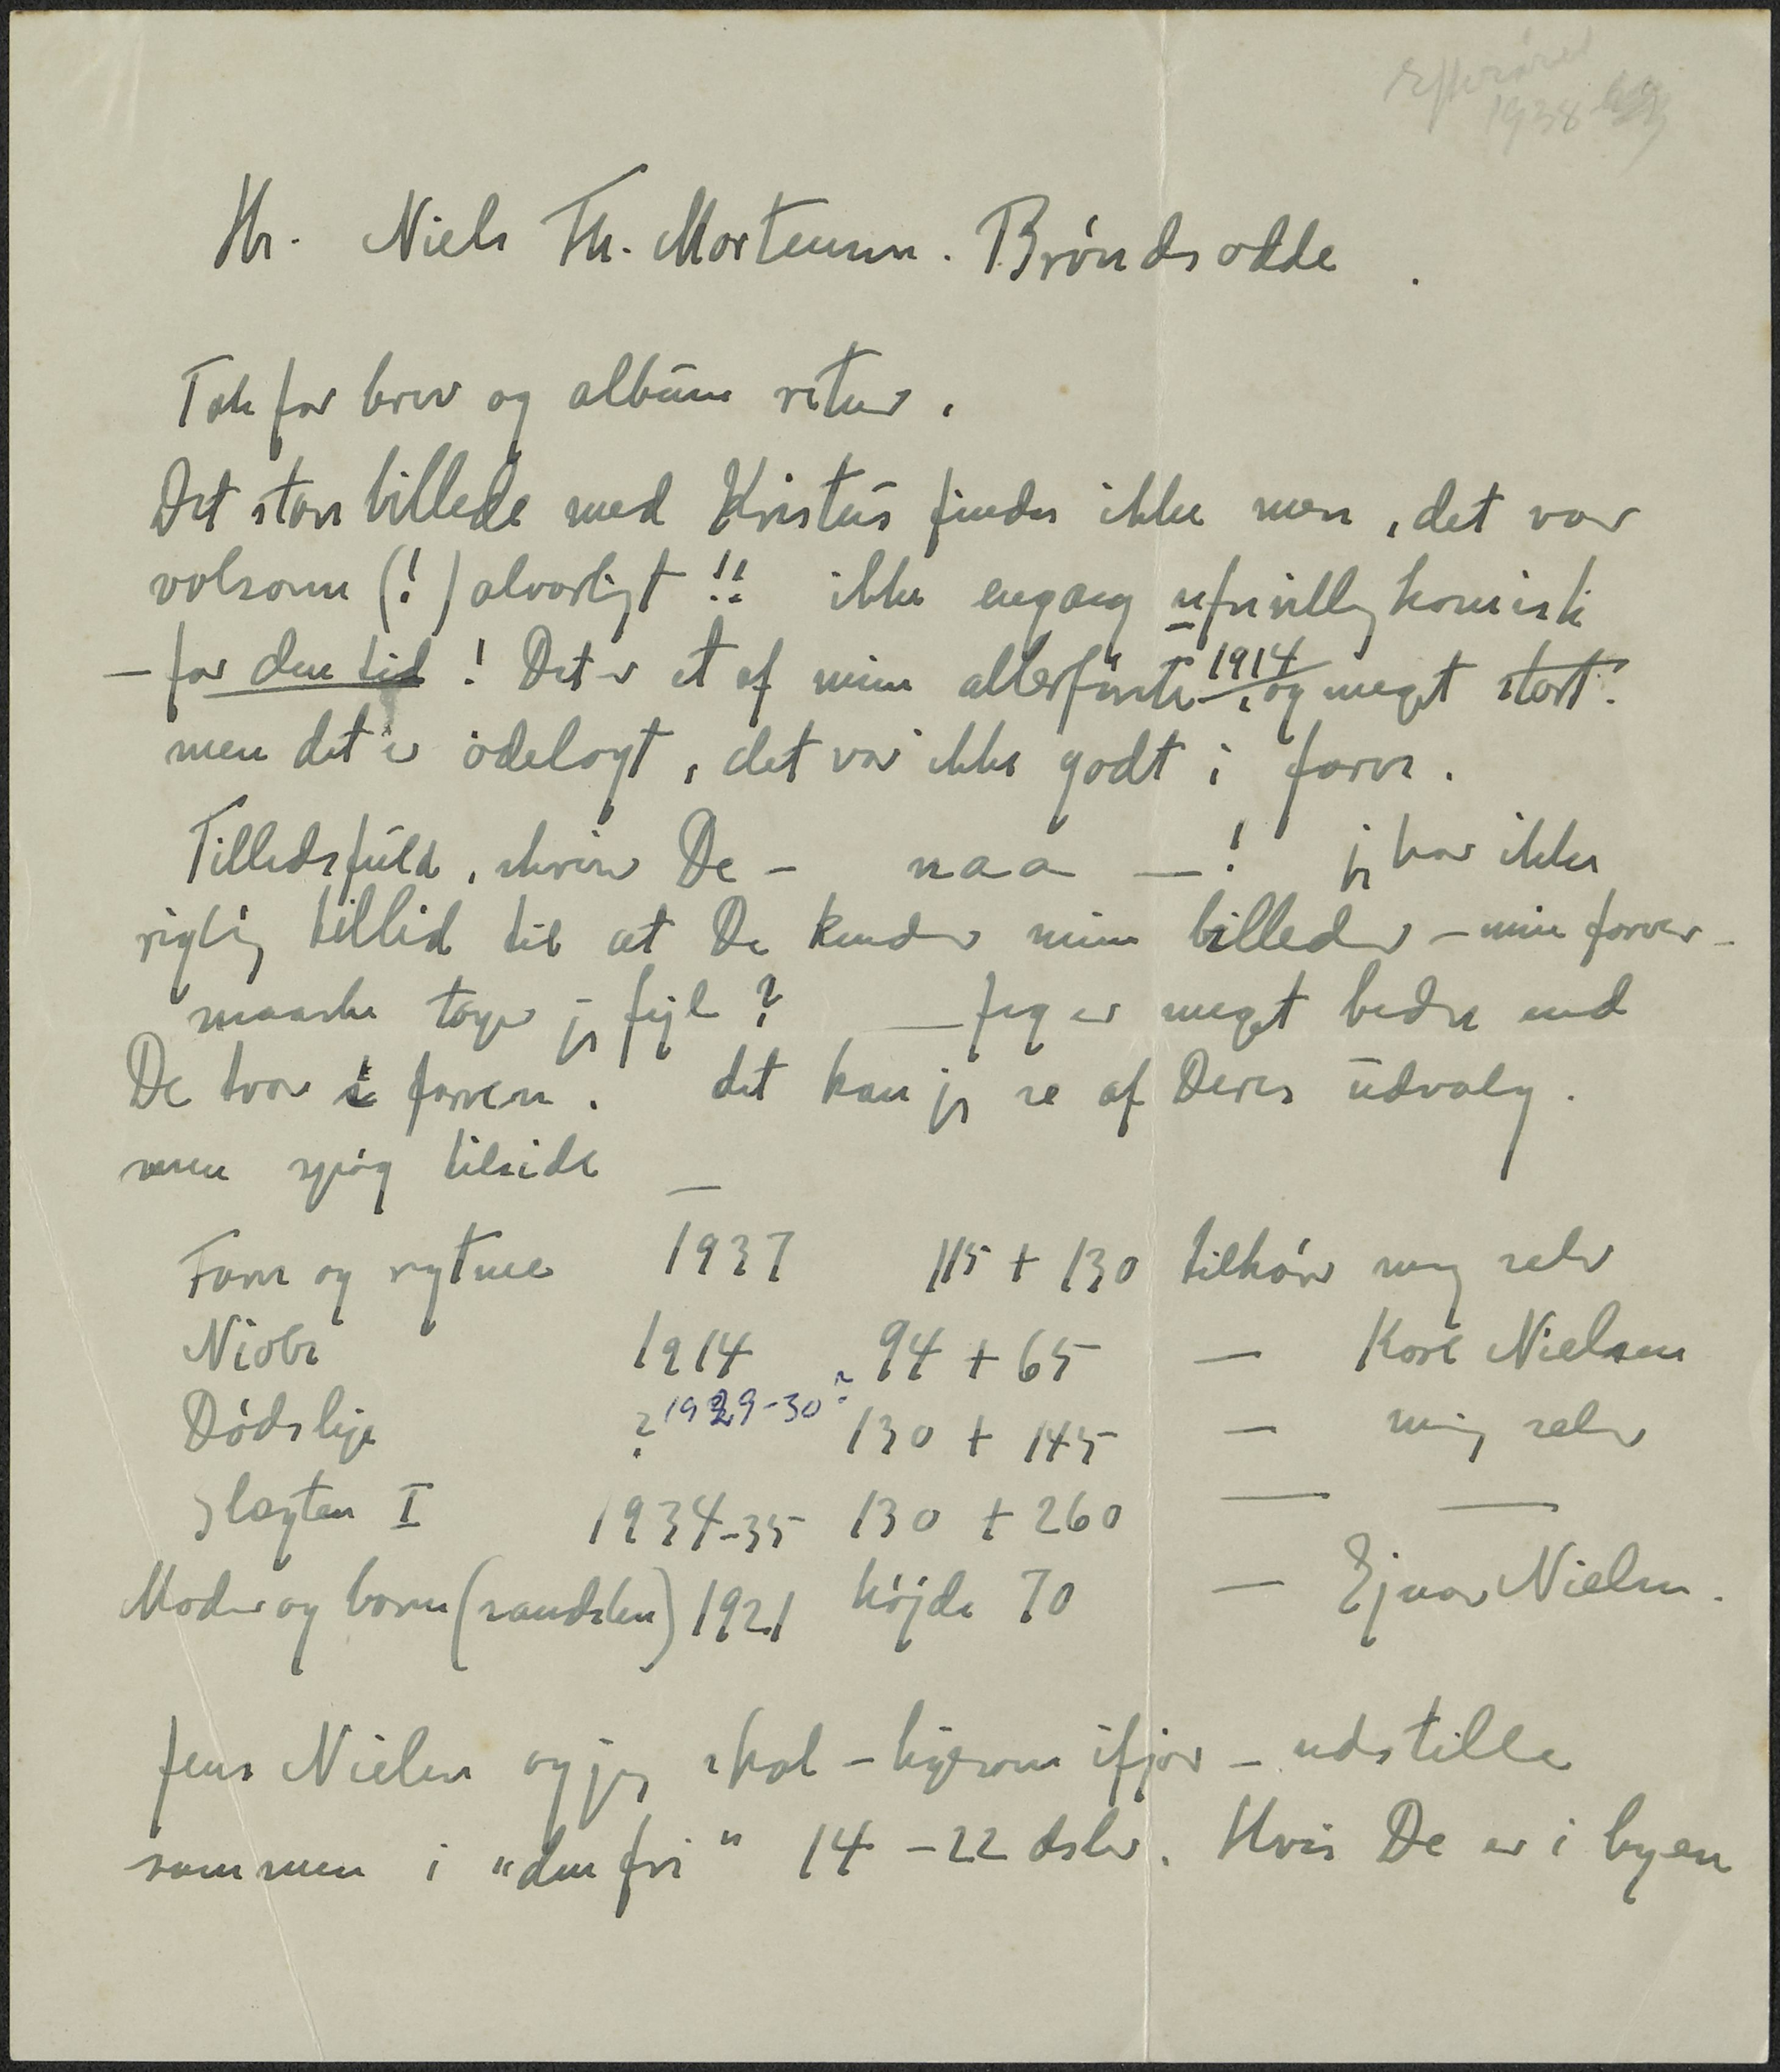 Efteråret
1938
Hr. Niels Th. Mortensen. Brøndsodde.
Tak for brev og album retur.
Det store billede med Kristus findes ikke mere, det var
volsomt (!) alvorligt !! ikke engang ufrivillig komisk
— for den tid ! Det er et af mine allerførste 1914, og meget stort.
men det er ødelagt, det var ikke godt i farve.
Tillidsfuld, skriver De — naa — ! jeg har ikke
rigtig tillid til at De kender mine billeder — mine farver —
maaske tager jeg fejl ? — Jeg er meget bedre end
De tror i farven. det kan jeg se af Deres udvalg.
men spøg tilside —
Form og rytme 1937 115 + 130 tilhører mig selv
Niobe 1914 94 + 65 — Karl Nielsen
Dødsleje ? 1929-30? 130 + 145 — mig selv
Slægten I 1934-35 130 + 260 — —
Moder og barn (sandsten) 1921 højde 70 — Ejnar Nielsen.
Jens Nielsen og jeg skal — ligesom ifjor — udstille
sammen i "den fri" 14 - 22 dsbr. Hvis De er i byen